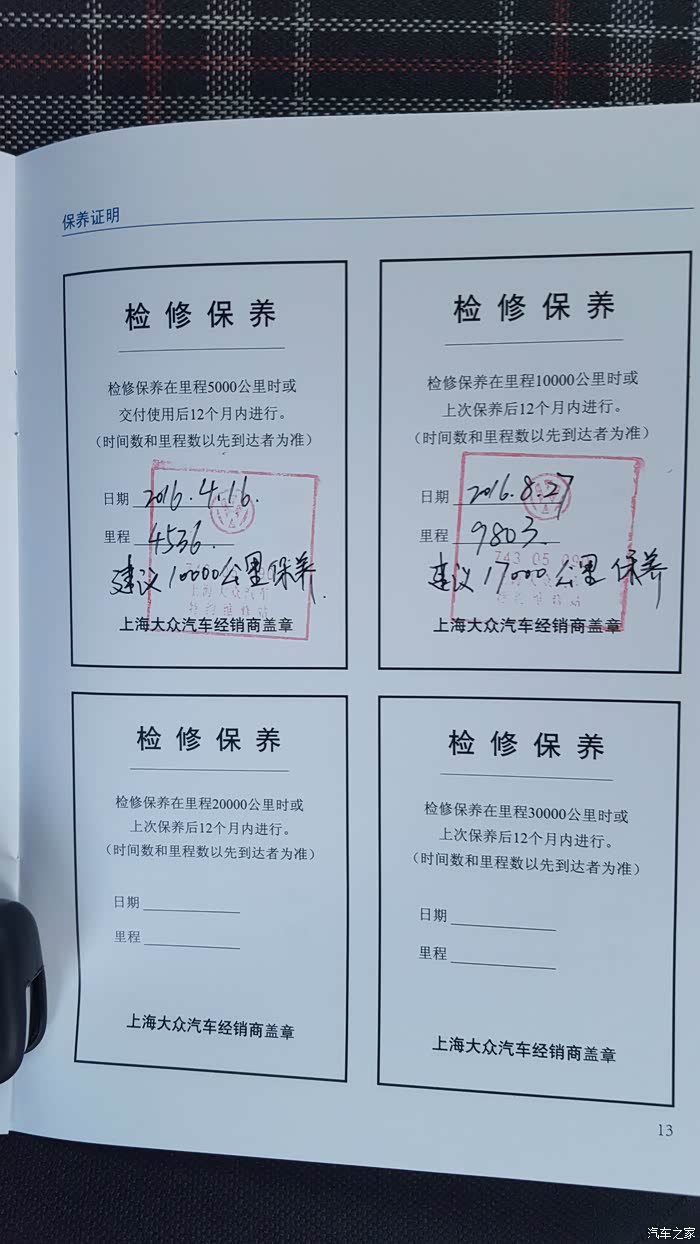 保养证明
检修保养
检修保养在里程5000公里时或
交付使用后12个月内进行。
（时间数和里程数以先到达者为准）
日期 2016.4.16.
里程 4536.
建议10000公里保养.
上海大众汽车
特约维修站
上海大众汽车经销商盖章
检修保养
检修保养在里程10000公里时或
上次保养后12个月内进行。
（时间数和里程数以先到达者为准）
日期 2016.8.27
里程 9803.
建议17000公里保养
特约维修站
上海大众汽车经销商盖章
检修保养
检修保养在里程20000公里时或
上次保养后12个月内进行。
（时间数和里程数以先到达者为准）
日期
里程
上海大众汽车经销商盖章
检修保养
检修保养在里程30000公里时或
上次保养后12个月内进行。
（时间数和里程数以先到达者为准）
日期
里程
上海大众汽车经销商盖章
13
汽车之家